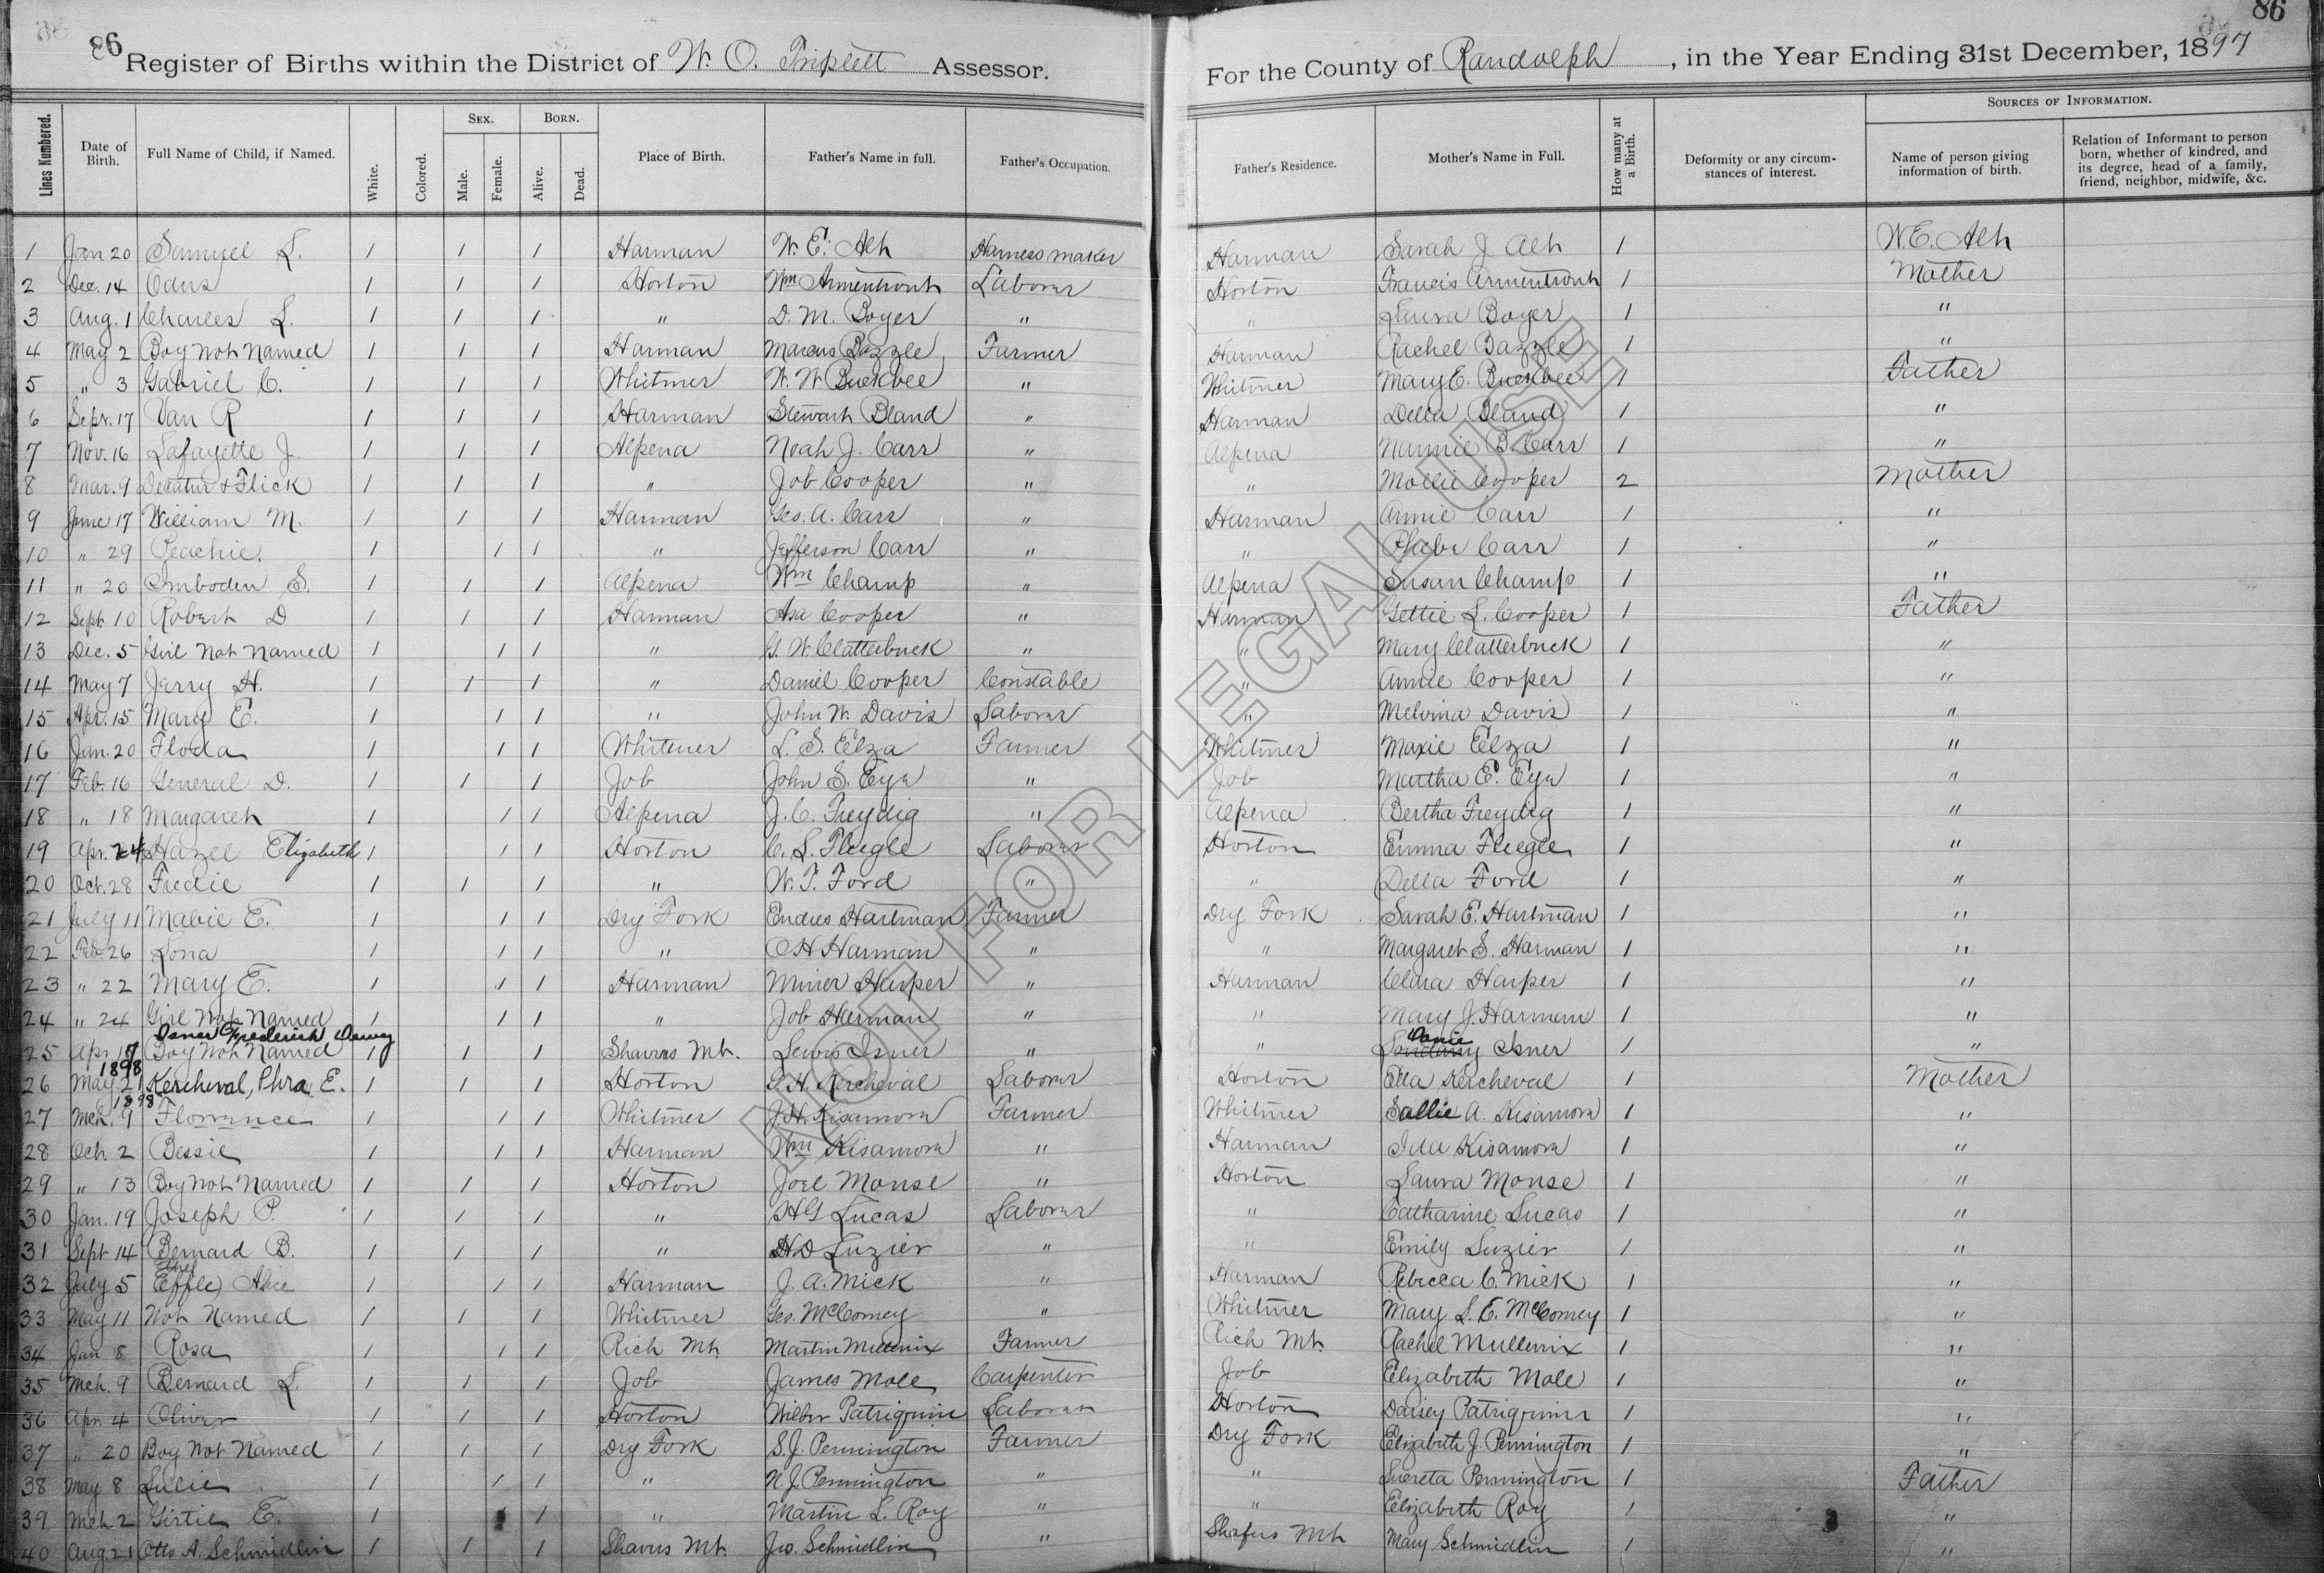 86
86
Register of Births within the District of W. O. Triplett Assessor.
For the County of Randolph, in the Year Ending 31st December, 1897
Lines Numbered. Date of Birth. Full Name of Child, if Named. White. Colored. Sex. Male. Female. Born. Alive. Dead. Place of Birth. Father's Name in full. Father's Occupation. Father's Residence. Mother's Name in Full. How many at a Birth. Deformity or any circumstances of interest. Sources of Information. Name of person giving information of birth. Relation of Informant to person born, whether of kindred, and its degree, head of a family, friend, neighbor, midwife, &c.
1 Jan 20 Samuel L. 1 1 1 Harman W. E. Alt Harness maker Harman Sarah J Alt 1 W. E. Alt
2 Dec. 14 Odus 1 1 1 Horton Wm Armentrout Laborer Horton Francis Armentrout 1 Mother
3 Aug. 1 Charles L. 1 1 1 " D. M. Boyer " " Laura Boyer 1 "
4 May 2 Boy Not Named 1 1 1 Harman Marcus Bazzle Farmer Harman Rachel Bazzle 1 "
5 " 3 Gabriel C. 1 1 1 Whitmer W. W Buckbee " Whitmer Mary E. Buckbee 1 Father
6 Sept. 17 Van R 1 1 1 Harman Stewart Bland " Harman Della Bland 1 "
7 Nov. 16 Lafayette J. 1 1 1 Alpena Noah J. Carr " Alpena Nannie B. Carr 1 "
8 Mar. 9 Decatur & Flick 1 1 1 " Job Cooper " " Mollie Cooper 2 Mother
9 June 17 William M. 1 1 1 Harman Geo. A. Carr " Harman Annie Carr 1 "
10 " 29 Peachie. 1 1 1 " Jefferson Carr " " Phebe Carr 1 "
11 " 20 Imboden S. 1 1 1 Alpena Wm Champ " Alpena Susan Champ 1 "
12 Sept. 10 Robert D 1 1 1 Harman Asa Cooper " Harman Gettie L. Cooper 1 Father
13 Dec. 5 Girl Not Named 1 1 1 " G. W. Clatterbuck " " Mary Clatterbuck 1 "
14 May 7 Jerry H. 1 1 1 " Daniel Cooper Constable " Annie Cooper 1 "
15 Apr. 15 Mary E. 1 1 1 " John W. Davis Laborer " Melvina Davis 1 "
16 Jan. 20 Floda 1 1 1 Whitmer L. S. Elza Farmer Whitmer Maxie Elza 1 "
17 Feb. 16 General D. 1 1 1 Job John S. Eye " Job Martha E. Eye 1 "
18 " 18 Margaret 1 1 1 Alpena J. C. Freydig " Alpena Bertha Freydig 1 "
19 Apr. 24 Hazel Elizabeth 1 1 1 Horton C. L. Fleegle Laborer Horton Emma Fleegle 1 "
20 Oct. 28 Fredie 1 1 1 " W. T. Ford " " Della Ford 1 "
21 July 11 Mabie E. 1 1 1 Dry Fork Endres Hartman Farmer Dry Fork Sarah E. Hartman 1 "
22 Feb. 26 Lona 1 1 1 " O H Harman " " Margaret S. Harman 1 "
23 " 22 Mary E. 1 1 1 Harman Minier Harper " Harman Clara Harper 1 "
24 " 24 Girl Not Named 1 1 1 " Job Harman " " Mary J. Harman 1 "
Isner Frederick Dewey
25 Apr 17 1898 Boy Not Named 1 1 1 Shavers Mt. Lewis Isner " " Dovie Isner 1 "
26 May 21 1898 Kercheval, Phra E. 1 1 1 Horton G. H. Kercheval Laborer Horton Ella Kercheval 1 Mother
27 Mch. 9 Florance 1 1 1 Whitmer J. H. Kisamore Farmer Whitmer Sallie A. Kisamore 1 "
28 Oct. 2 Bessie 1 1 1 Harman Wm Kisamore " Harman Ida Kisamore 1 "
29 " 13 Boy Not Named 1 1 1 Horton Joel Monse " Horton Laura Monse 1 "
30 Jan. 19 Joseph P. 1 1 1 " H G Lucas Laborer " Catharine Lucas 1 "
31 Sept 14 Bernard B. 1 1 1 " H D Luzier " " Emily Luzier 1 "
32 July 5 Effle Ethel Alice 1 1 1 Harman J. A. Mick " Harman Rebecca C. Mick 1 "
33 May 11 Not Named 1 1 1 Whitmer Geo. McComey " Whitmer Mary L. E. McComey 1 "
34 Jan 8 Rosa 1 1 1 Rich Mt. Martin Mullenix Farmer Rich Mt. Rachel Mullenix 1 "
35 Mch. 9 Bernard L. 1 1 1 Job James Mole Carpenter Job Elizabeth Mole 1 "
36 Apr. 4 Oliver 1 1 1 Horton Wilber Patriquin Laborer Horton Daisey Patriquin 1 "
37 " 20 Boy Not Named 1 1 1 Dry Fork S. J. Pennington Farmer Dry Fork Elizabeth J. Pennington 1 "
38 May 8 Lulie 1 1 1 " N. J. Pennington " " Lucreta Pennington 1 Father
39 Mch 2 Girtie E. 1 1 1 " Martin L. Roy " " Elizabeth Roy 1 "
40 Aug. 21 Otto A. Schmidlin 1 1 1 Shavers Mt. Jno. Schmidlin " Shafers Mt Mary Schmidlin 1 "
NOT FOR LEGAL USE